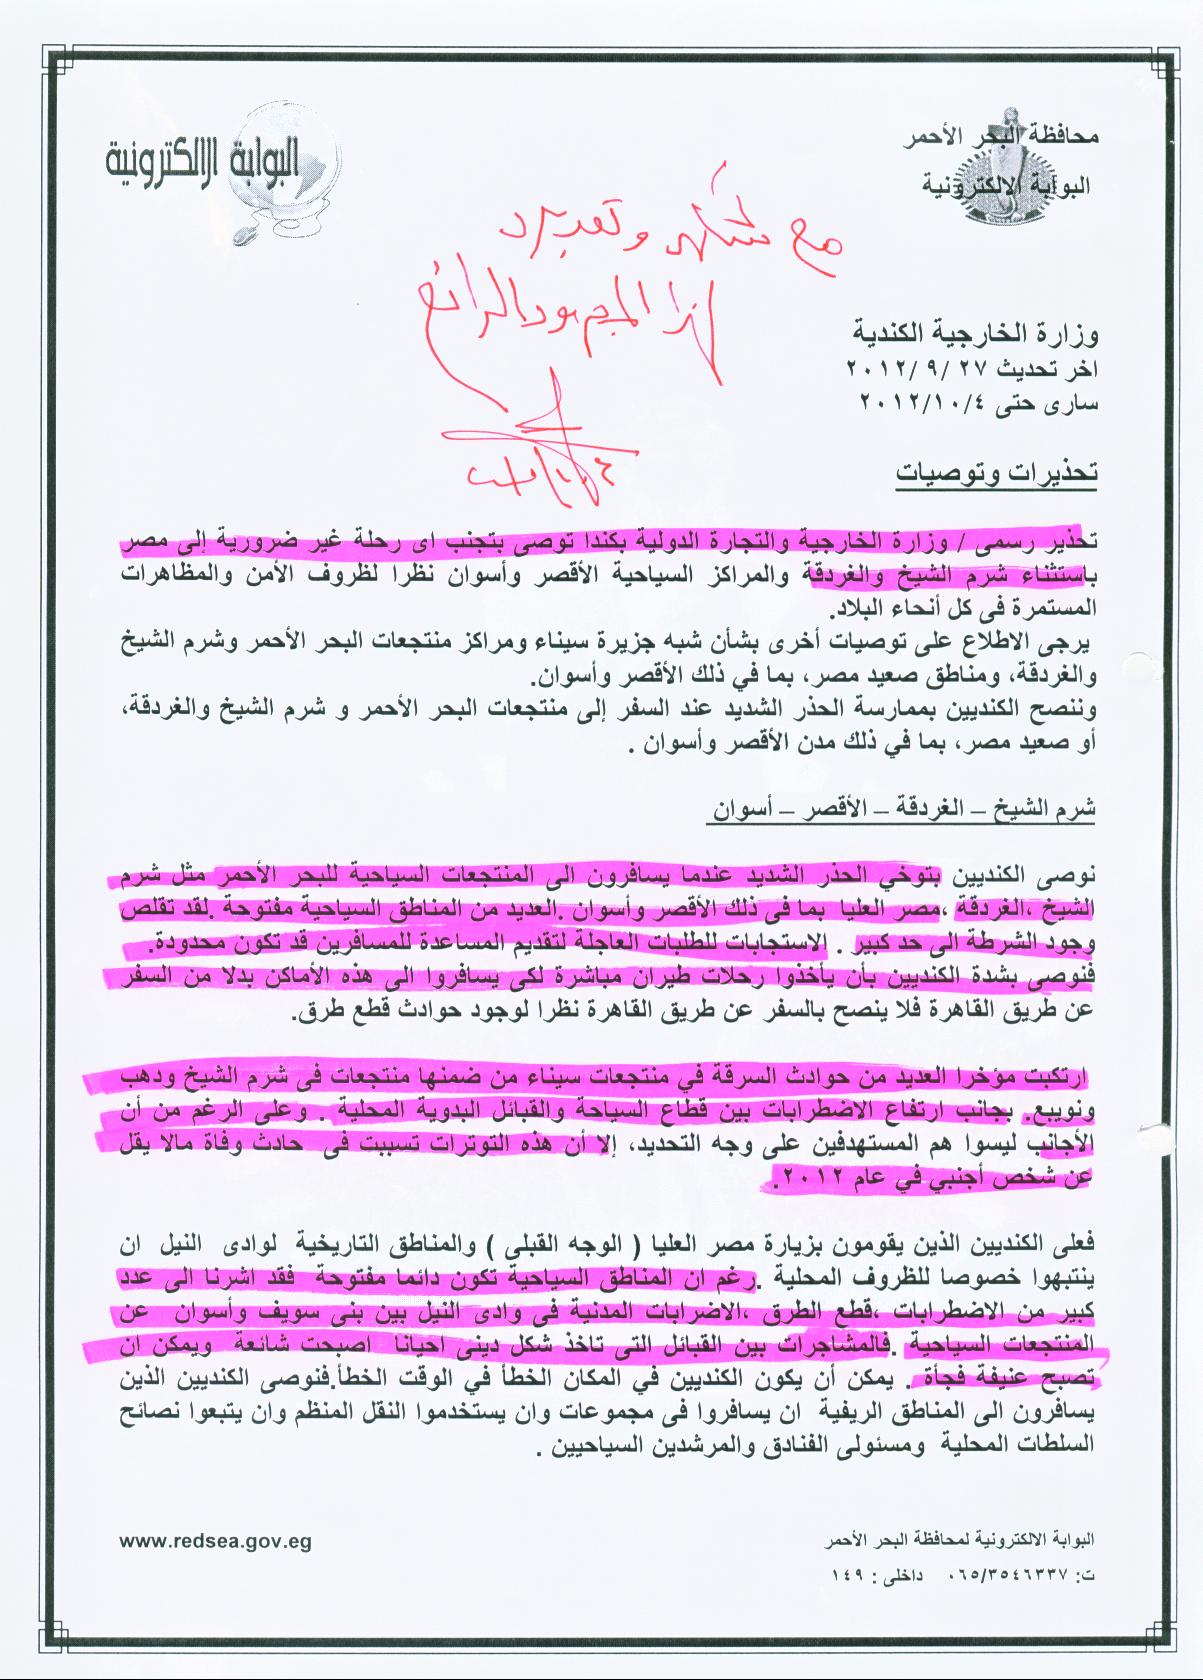 محافظة البحر الأحمر
البوابة الالكترونية
البوابة الالكترونية
مع شكر وتقدير
لهذا المجهود الرائع
وزارة الخارجية الكندية
اخر تحديث ٢٧ /٩ /٢٠١٢
سارى حتى ٢٠١٢/١٠/٤
تحذيرات وتوصيات
تحذير رسمى / وزارة الخارجية والتجارة الدولية بكندا توصى بتجنب اى رحلة غير ضرورية إلى مصر
باستثناء شرم الشيخ والغردقة والمراكز السياحية الأقصر وأسوان نظرا لظروف الأمن والمظاهرات
المستمرة فى كل أنحاء البلاد.
يرجى الاطلاع على توصيات أخرى بشأن شبه جزيرة سيناء ومراكز منتجعات البحر الأحمر وشرم الشيخ
والغردقة، ومناطق صعيد مصر، بما في ذلك الأقصر وأسوان.
وننصح الكنديين بممارسة الحذر الشديد عند السفر إلى منتجعات البحر الأحمر و شرم الشيخ والغردقة،
أو صعيد مصر، بما في ذلك مدن الأقصر وأسوان .
شرم الشيخ – الغردقة – الأقصر – أسوان
نوصى الكنديين بتوخي الحذر الشديد عندما يسافرون الى المنتجعات السياحية للبحر الأحمر مثل شرم
الشيخ ،الغردقة ،مصر العليا بما فى ذلك الأقصر وأسوان .العديد من المناطق السياحية مفتوحة .لقد تقلص
وجود الشرطة الى حد كبير . الاستجابات للطلبات العاجلة لتقديم المساعدة للمسافرين قد تكون محدودة.
فنوصى بشدة الكنديين بأن يأخذوا رحلات طيران مباشرة لكى يسافروا الى هذه الأماكن بدلا من السفر
عن طريق القاهرة فلا ينصح بالسفر عن طريق القاهرة نظرا لوجود حوادث قطع طرق.
ارتكبت مؤخرا العديد من حوادث السرقة في منتجعات سيناء من ضمنها منتجعات فى شرم الشيخ ودهب
ونويبع. بجانب ارتفاع الاضطرابات بين قطاع السياحة والقبائل البدوية المحلية . وعلى الرغم من أن
الأجانب ليسوا هم المستهدفين على وجه التحديد، إلا أن هذه التوترات تسببت فى حادث وفاة مالا يقل
عن شخص أجنبي في عام ٢٠١٢.
فعلى الكنديين الذين يقومون بزيارة مصر العليا ( الوجه القبلى ) والمناطق التاريخية لوادى النيل ان
ينتبهوا خصوصا للظروف المحلية .رغم ان المناطق السياحية تكون دائما مفتوحة فقد اشرنا الى عدد
كبير من الاضطرابات ،قطع الطرق ،الاضرابات المدنية فى وادى النيل بين بنى سويف وأسوان عن
المنتجعات السياحية .فالمشاجرات بين القبائل التى تاخذ شكل دينى احيانا اصبحت شائعة ويمكن ان
تصبح عنيفة فجأة . يمكن أن يكون الكنديين في المكان الخطأ في الوقت الخطأ.فنوصى الكنديين الذين
يسافرون الى المناطق الريفية ان يسافروا فى مجموعات وان يستخدموا النقل المنظم وان يتبعوا نصائح
السلطات المحلية ومسئولى الفنادق والمرشدين السياحيين .
البوابة الالكترونية لمحافظة البحر الأحمر
www.redsea.gov.eg
ت: ٠٦٥/٣٥٤٦٣٣٧ داخلى : ١٤٩